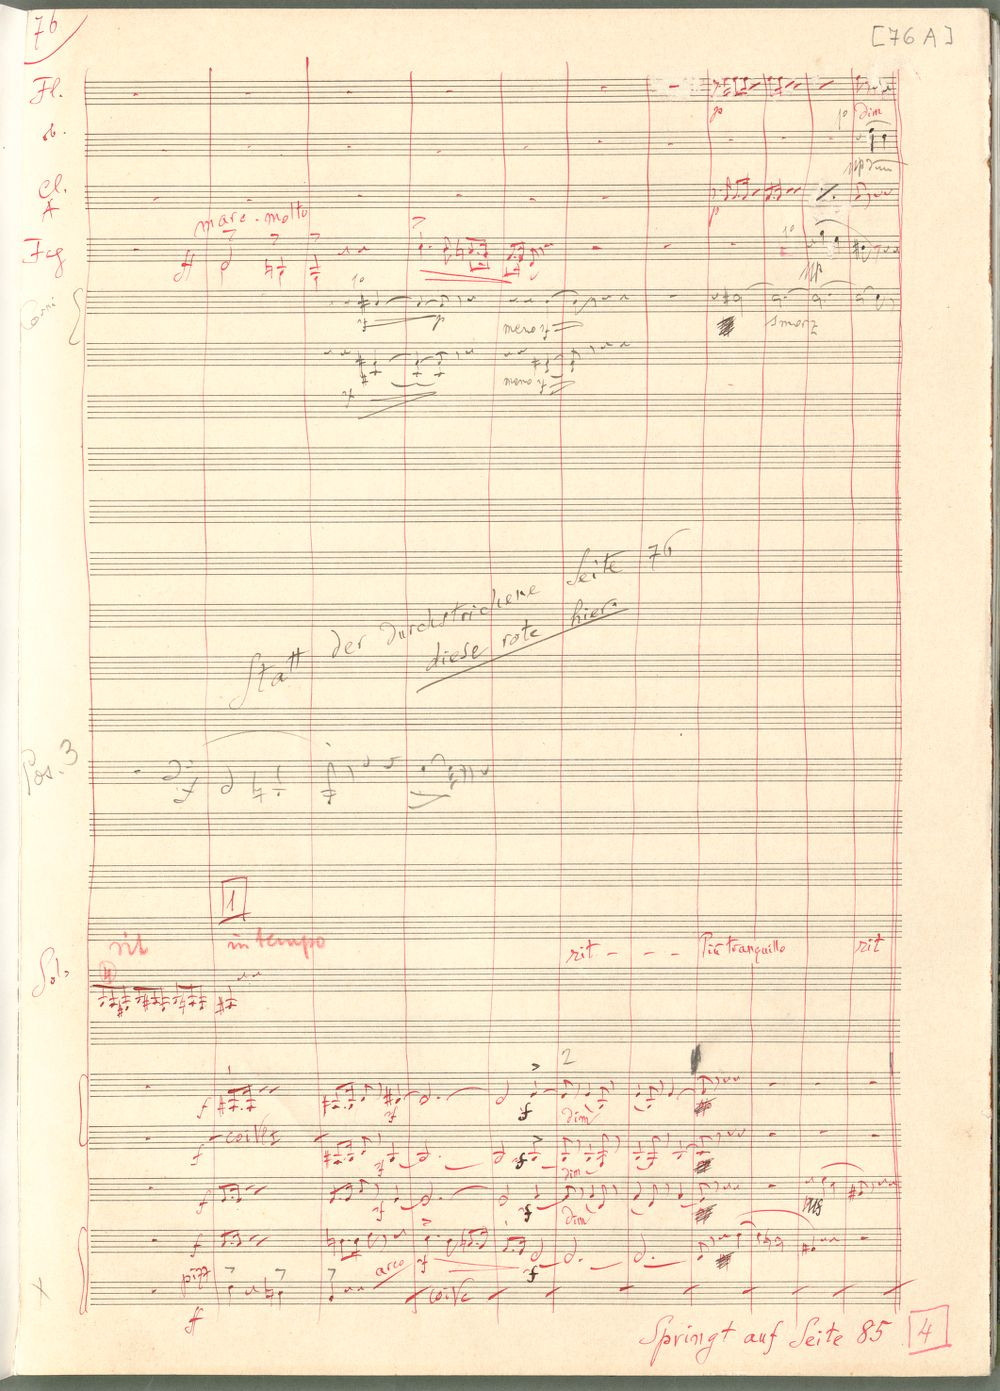 76
[76 A]
Fl.
p
p dim
ob.
mpdim
Cl.
A
p
marc. molto
Fcg
ff
pp
Corni
10
meno f.
smorz
meno f.
Statt der durchstrichene Seite 76
diese rote hier.
Pos. 3
1
rit in tempo rit - - - Più tranquillo rit
Sol.
2
f f. dim
f coi Vl I f. dim
f f. dim
f arco f.
pizz coi Vc
ff
Springt auf Seite 85 4